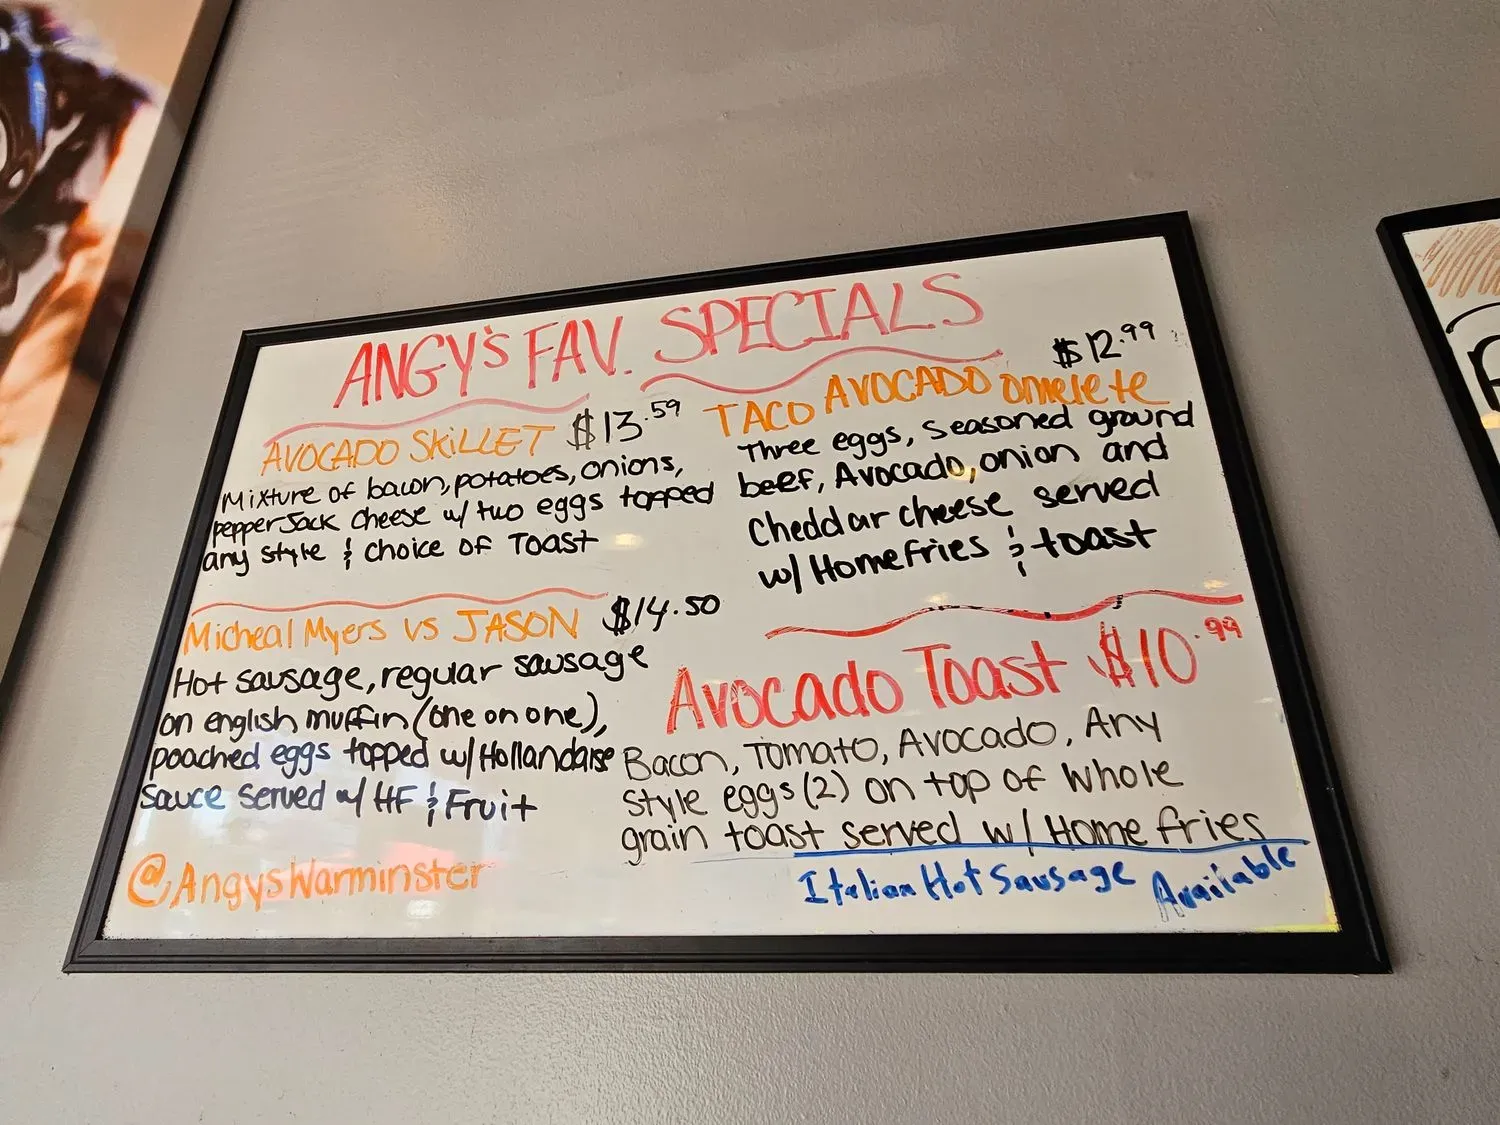 ANGY'S FAV. SPECIALS
AVOCADO SKILLET $13.59
Mixture of bacon, potatoes, onions,
pepper Jack cheese w/ two eggs topped
any style & choice of Toast
TACO AVOCADO omelete $12.99
Three eggs, seasoned ground
beef, Avocado, onion and
Cheddar cheese served
w/ Homefries & toast
Micheal Myers vs JASON $14.50
Hot sausage, regular sausage
on english muffin (one on one),
poached eggs topped w/ Hollandaise
sauce served w/ HF & Fruit
Avocado Toast $10.99
Bacon, Tomato, Avocado, Any
style eggs (2) on top of whole
grain toast served w/ Home fries
Italian Hot Sausage Available
@AngysWarminster